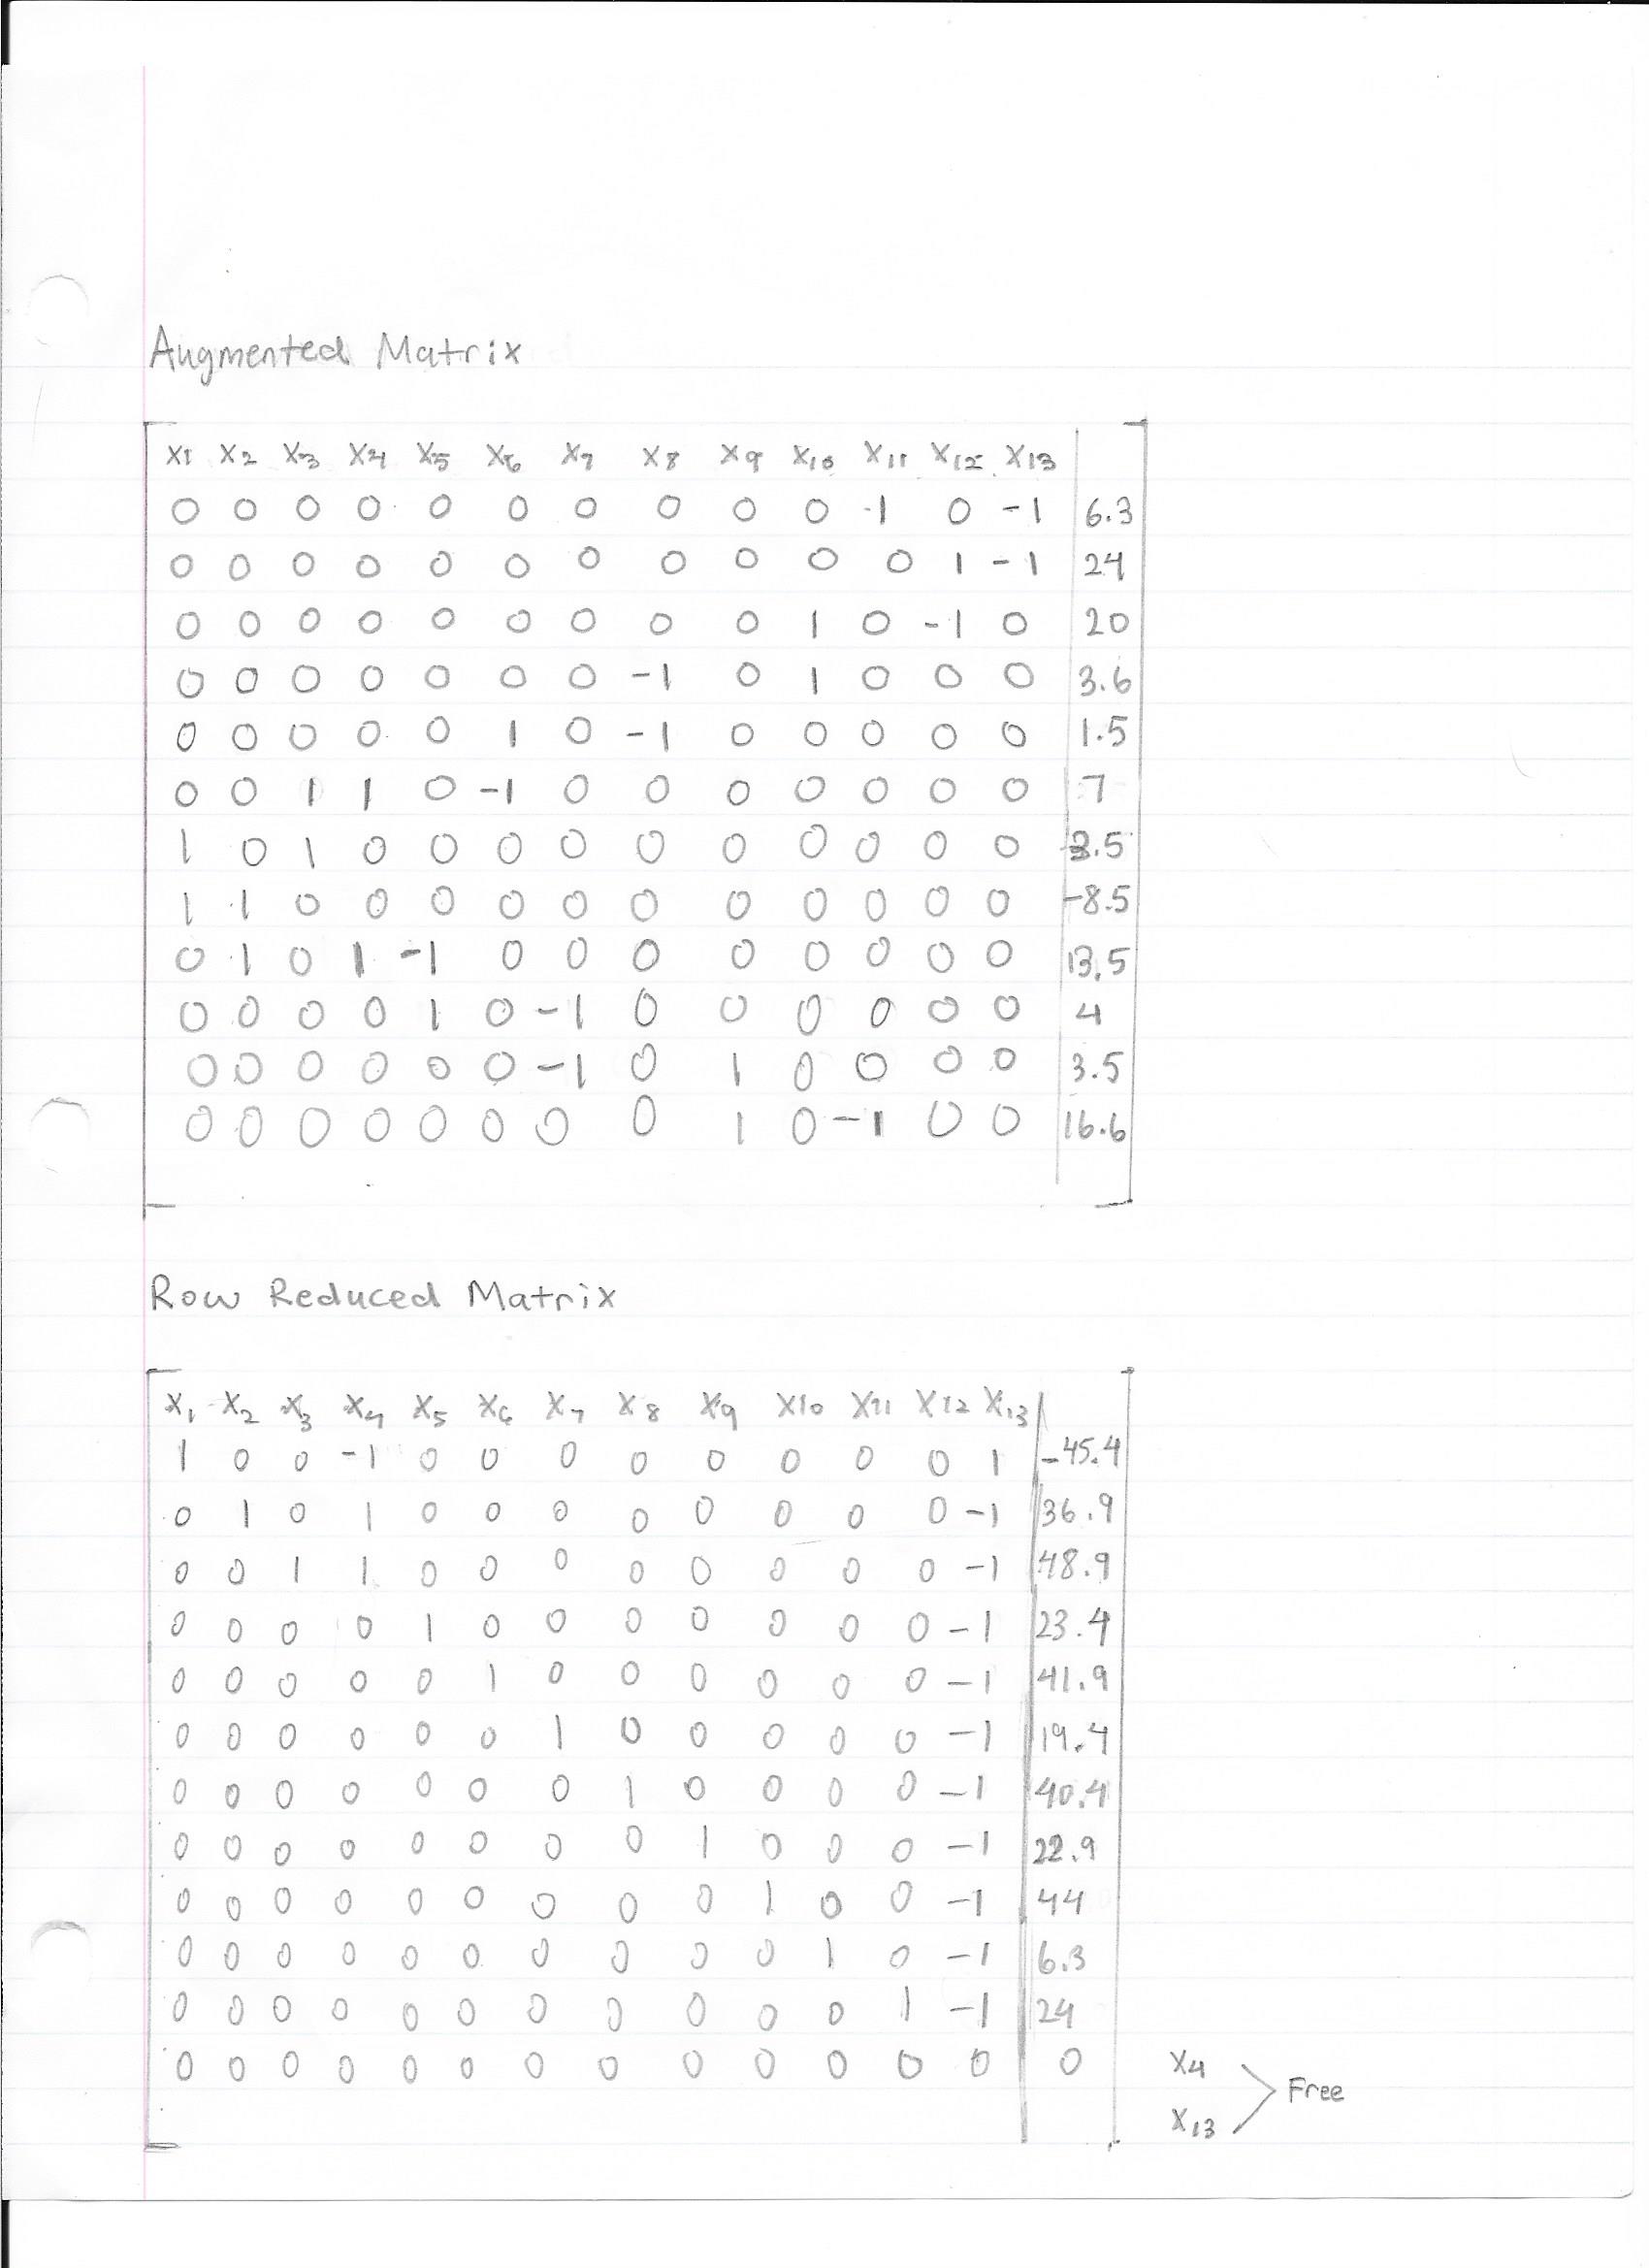 Augmented Matrix
X1 X2 X3 X4 X5 X6 X7 X8 X9 X10 X11 X12 X13
0 0 0 0 0 0 0 0 0 0 1 0 -1 6.3
0 0 0 0 0 0 0 0 0 0 0 1 -1 24
0 0 0 0 0 0 0 0 0 1 0 -1 0 20
0 0 0 0 0 0 0 -1 0 1 0 0 0 3.6
0 0 0 0 0 1 0 -1 0 0 0 0 0 1.5
0 0 1 1 0 -1 0 0 0 0 0 0 0 7
1 0 1 0 0 0 0 0 0 0 0 0 0 3.5
1 1 0 0 0 0 0 0 0 0 0 0 0 -8.5
0 1 0 1 -1 0 0 0 0 0 0 0 0 13.5
0 0 0 0 1 0 -1 0 0 0 0 0 0 4
0 0 0 0 0 0 -1 0 1 0 0 0 0 3.5
0 0 0 0 0 0 0 0 1 0 -1 0 0 16.6
Row Reduced Matrix
X1 X2 X3 X4 X5 X6 X7 X8 X9 X10 X11 X12 X13
1 0 0 -1 0 0 0 0 0 0 0 0 1 -45.4
0 1 0 1 0 0 0 0 0 0 0 0 -1 36.9
0 0 1 1 0 0 0 0 0 0 0 0 -1 48.9
0 0 0 0 1 0 0 0 0 0 0 0 -1 23.4
0 0 0 0 0 1 0 0 0 0 0 0 -1 41.9
0 0 0 0 0 0 1 0 0 0 0 0 -1 19.4
0 0 0 0 0 0 0 1 0 0 0 0 -1 40.4
0 0 0 0 0 0 0 0 1 0 0 0 -1 22.9
0 0 0 0 0 0 0 0 0 1 0 0 -1 44
0 0 0 0 0 0 0 0 0 0 1 0 -1 6.3
0 0 0 0 0 0 0 0 0 0 0 1 -1 24
0 0 0 0 0 0 0 0 0 0 0 0 0 0
X4
Free
X13